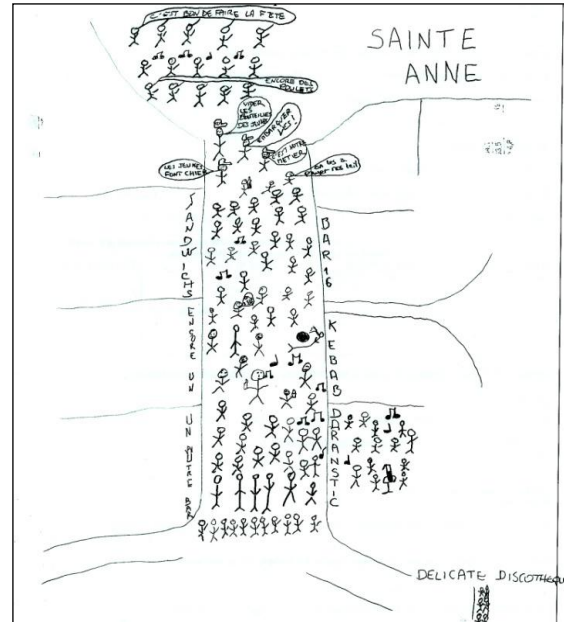 C'EST BON DE FAIRE LA FETE
SAINTE
ANNE
ENCORE DES
POULETS
VIDER
LES
BOUTEILLES
DES JEUNES
EMBARQUER
LES !
C'EST NOTRE
METIER
LES JEUNES
FONT CHIER
SANDWICHS
BAR 16
ENCORE UN
KEBAB
UN AUTRE BAR
DARANSTIC
DELICATE DISCOTHEQUE